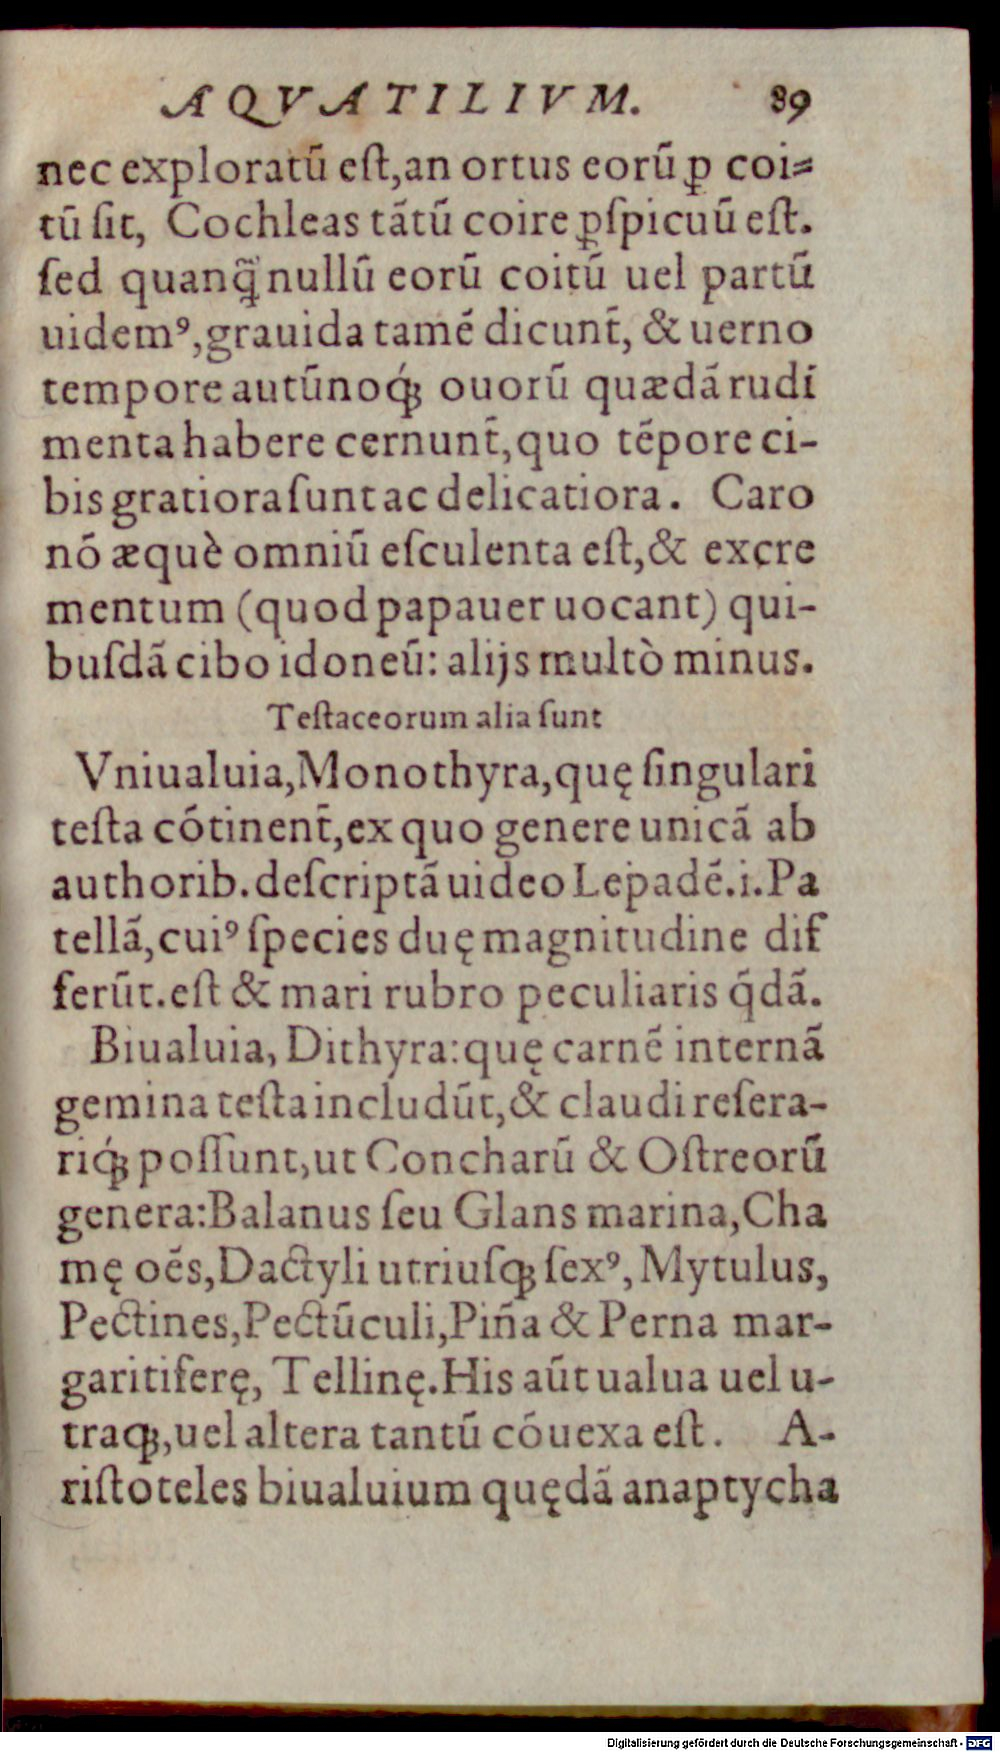 AQVATILIVM. 89
nec exploratū eſt, an ortus eorū ꝑ coi⸗
tū ſit, Cochleas tātū coire ꝑſpicuū eſt.
ſed quanq̃ nullū eorū coitū uel partū
uidemꝰ, grauida tamē dicunt̃, & uerno
tempore autūnoq́ꝫ ouorū quædā rudi
menta habere cernunt̃, quo tēpore ci-
bis gratiora ſunt ac delicatiora. Caro
nō æquè omniū eſculenta eſt, & excre
mentum (quod papauer uocant) qui-
buſdā cibo idoneū: alijs multò minus.
Teſtaceorum alia ſunt
Vniualuia, Monothyra, quę ſingulari
teſta cōtinent̃, ex quo genere unicā ab
authorib. deſcriptā uideo Lepadē.i.Pa
tellā, cuiꝰ ſpecies duę magnitudine dif
ferūt. eſt & mari rubro peculiaris q̄dā.
Biualuia, Dithyra: quę carnē internā
gemina teſta includūt, & claudi reſera-
riq́ꝫ poſſunt, ut Concharū & Oſtreorū
genera: Balanus ſeu Glans marina, Cha
mę oēs, Dactyli utriuſqꝫ ſexꝰ, Mytulus,
Pectines, Pectūculi, Piña & Perna mar-
garitiferę, Tellinę. His aūt ualua uel u-
traqꝫ, uel altera tantū cōuexa eſt. A-
riſtoteles biualuium quędā anaptycha
Digitalisierung gefördert durch die Deutsche Forschungsgemeinschaft - DFG